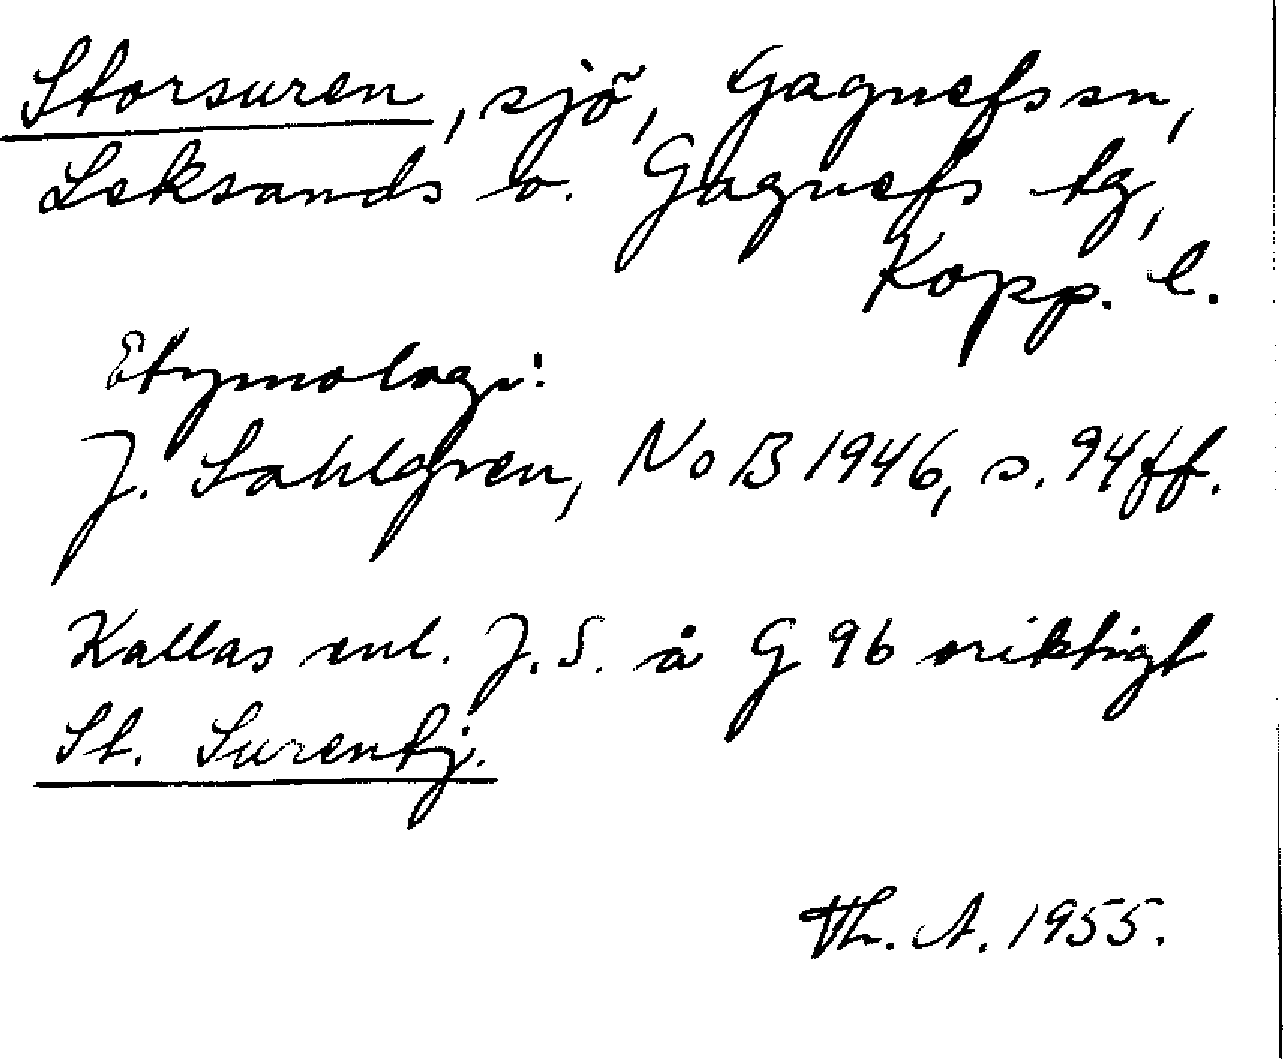 Storsuren, sjö, Gagnefs sn,
Leksands o. Gagnefs tg,
Kopp. l.
Etymologi:
J. Sahlgren, NoB 1946, s. 94 ff.
Kallas enl. J.S. å G 96 oriktigt
St. Surentj.
Th. A. 1955.